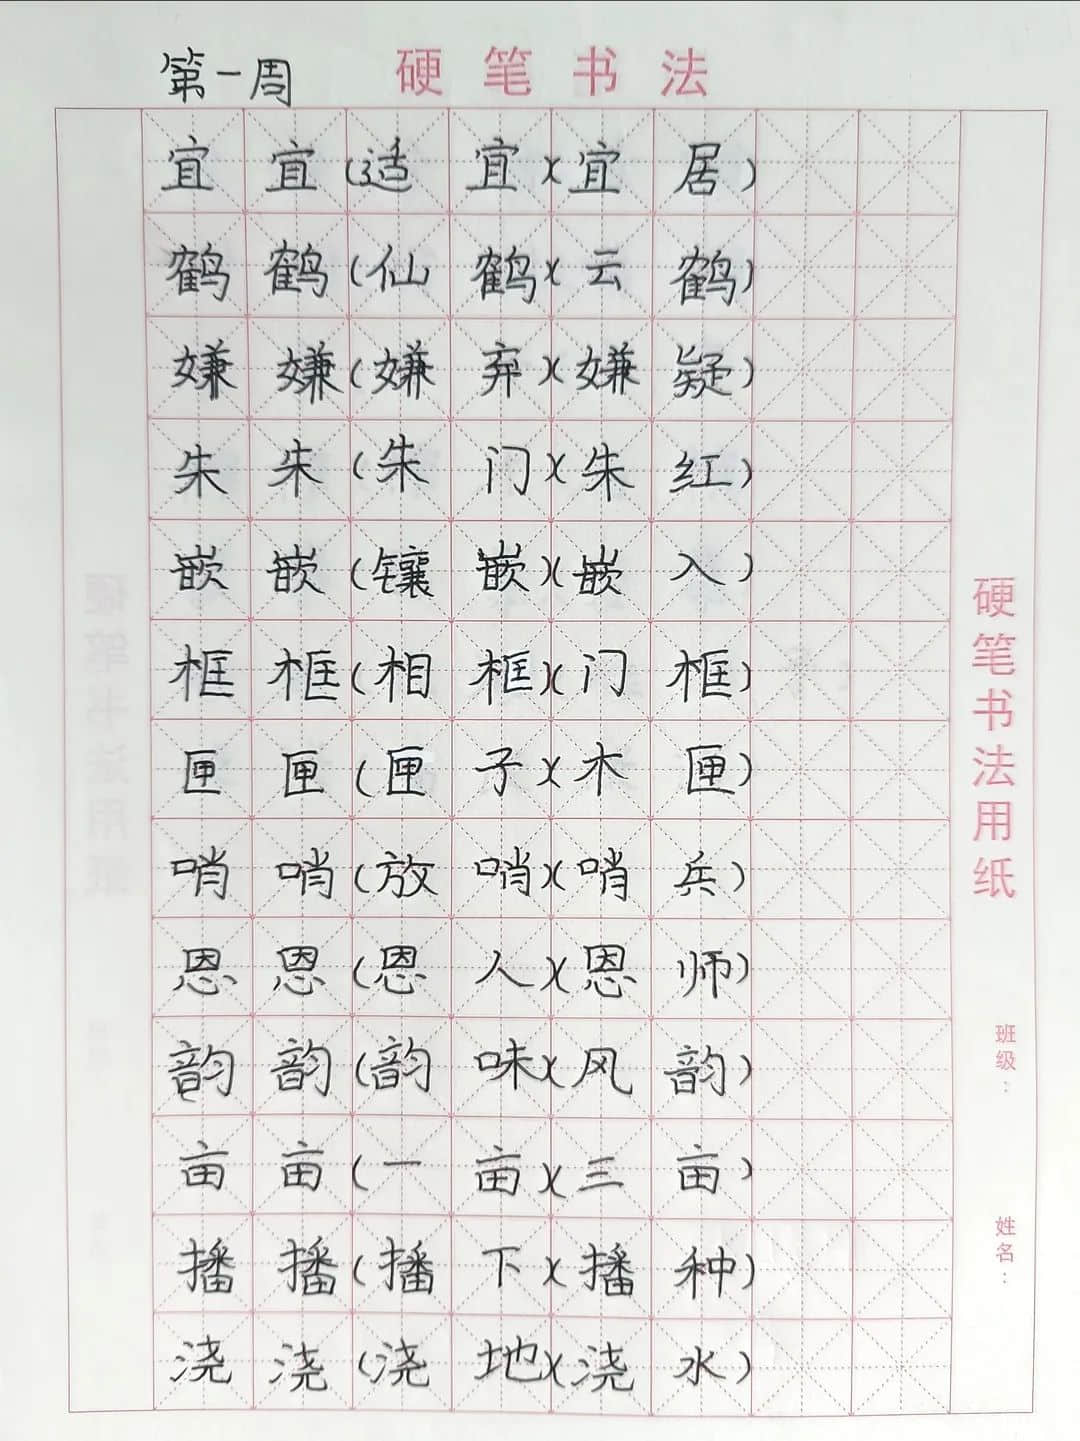 第一周 硬笔书法
宜宜(适宜)(宜居)
鹤鹤(仙鹤)(云鹤)
嫌嫌(嫌弃)(嫌疑)
朱朱(朱门)(朱红)
嵌嵌(镶嵌)(嵌入)
框框(相框)(门框)
匣匣(匣子)(木匣)
哨哨(放哨)(哨兵)
恩恩(恩人)(恩师)
韵韵(韵味)(风韵)
亩亩(一亩)(三亩)
播播(播下)(播种)
浇浇(浇地)(浇水)
硬笔书法用纸
班级：
姓名：